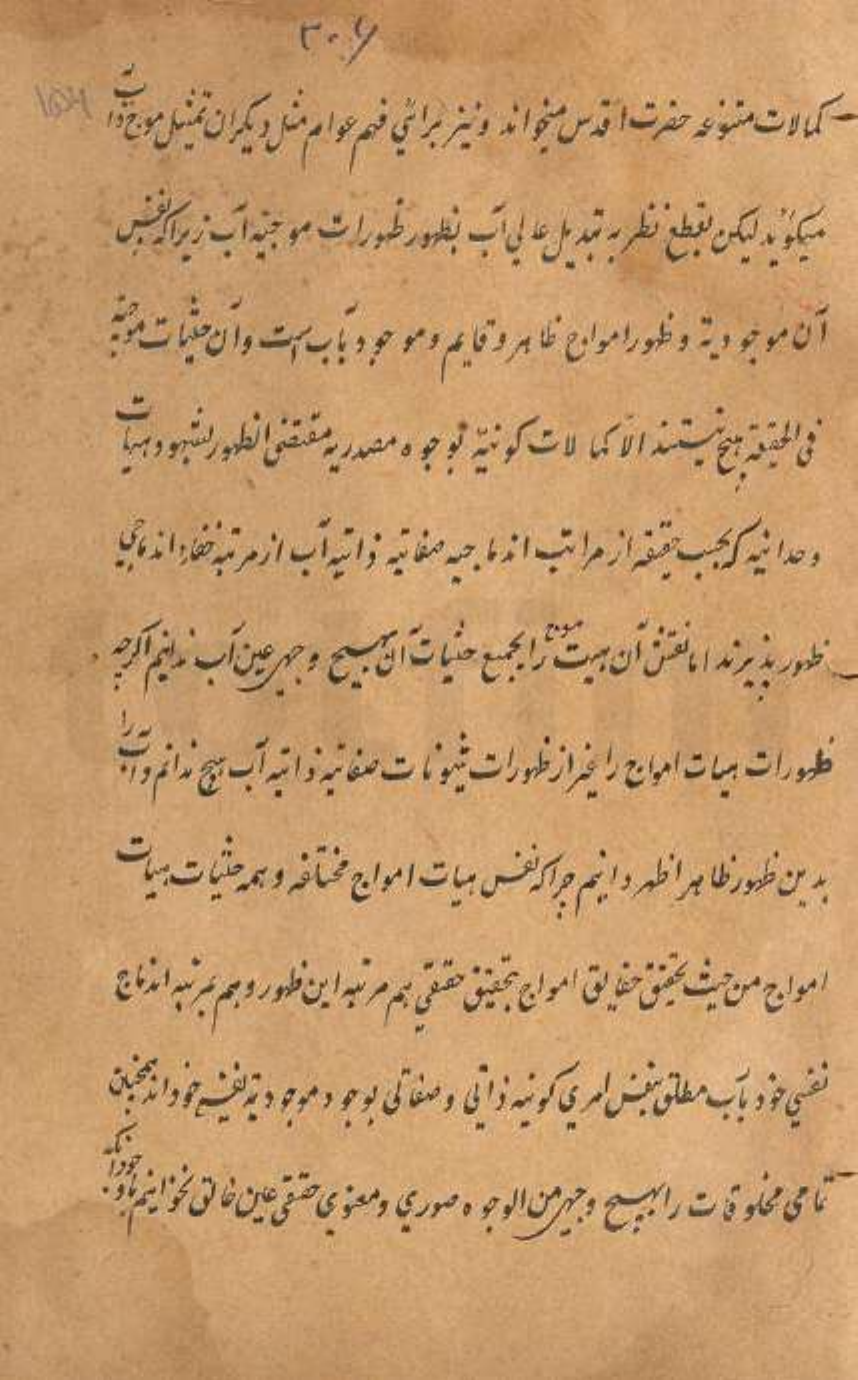 ۳۰۶
کمالات متنوعه حضرت اقدس میخواند و نیز برائی فهم عوام مثل دیکران تمثیل موج و آب
میکوید لیکن بقطع نظر به تبدیل عالی آب بظهور ظهورات موجیه آب زیرا که نفس
آن موجودیة و ظهور امواج ظاهر و قایم و موجود بآب است و آن حثیات موجیه
فی الحقیقة هیچ نیستند الّا کمالات کونیّه بوجوه مصدریه مقتضی الظهور لنفسه و هیات
وحدانیه که بحسب حقیقه از مراتب اندماجیه صفاتیه ذاتیه آب از مرتبه خفاء اندماجی
ظهور پذیرند اما نفس آن هیت موج را بجمیع حثیات آن بهیچ وجهی عین آب ندانیم اکرچه
ظهورات هیات امواج را غیر از ظهورات شیونات صفاتیه ذاتیه آب هیچ ندانم و آب را
بدین ظهور ظاهر اظهر دانیم چرا که نفس هیات امواج مختلفه و همه حثیات هیات
امواج من حیث تحقیق حقایق امواج بتحقیق حقیقی هم مرتبه این ظهور و هم بمرتبه اندماج
نفسی خود بآب مطلق بنفس امری کونیه ذاتی و صفاتی بوجود موجودیة نفسیه خود اند همچنان
تمامی مخلوقات را بهیچ وجهی من الوجوه صوری و معنوی حقیقی عین خالق نخوانیم باوجود آنکه